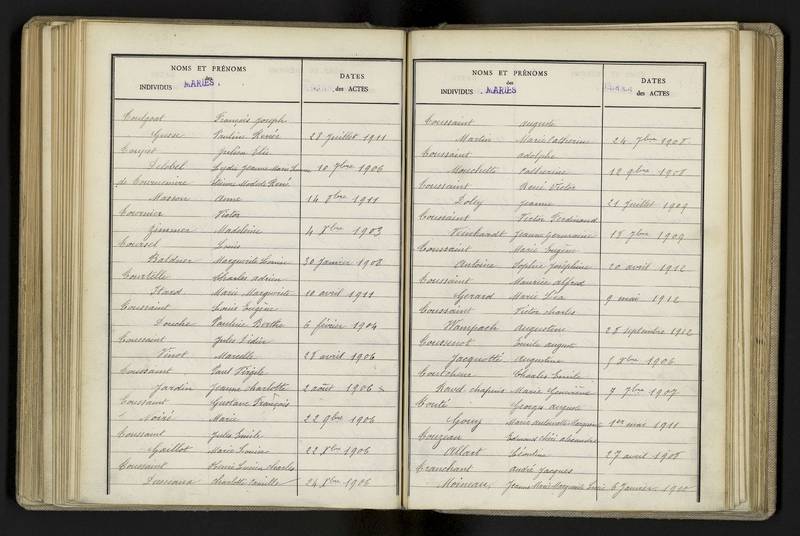 NOMS ET PRÉNOMS
des
INDIVIDUS MARIÉS.
DATES
des ACTES
François Joseph
Pauline Renée 28 Juillet 1911
Julien Elie
Delobel Lydie Jeanne Marie 10 7bre 1906
de
Masson Anne 14 8bre 1911
Cournier Victor
Zimmer Madeleine 4 8bre 1903
Coursel Louis
Baldner Marguerite Louise 30 Janvier 1908
Courtelle Charles Adrien
Itard Marie Marguerite 10 avril 1911
Coussaint Louis Eugène
Douche Pauline Berthe 6 février 1904
Coussaint Jules Didier
Vinot Marcelle 28 avril 1906
Coussaint Paul Virgile
Jardin Jeanne Charlotte 2 août 1906
Coussaint Gustave François
Noiré Marie 22 9bre 1906
Coussaint Jules Emile
Gaillot Marie Louise 22 8bre 1906
Coussaint Henri Lucien Charles
Charlotte Camille 24 8bre 1906
NOMS ET PRÉNOMS
des
INDIVIDUS MARIÉS
DATES
des ACTES
Coussaint Auguste
Martin Marie Catherine 24 7bre 1908
Coussaint Adolphe
Mouchette Catherine 12 9bre 1908
Coussaint René Victor
Doley Jeanne 21 Juillet 1909
Coussaint Victor Ferdinand
Jeanne Germaine 18 7bre 1909
Coussaint Marie Eugène
Antoine Sophie Joséphine 20 avril 1912
Coussaint Maurice Alfred
Gérard Marie Léa 9 mai 1912
Coussaint Victor Charles
Wampach Augustine 28 septembre 1912
Coussenot Emile August
Jacquotte Augustine 1906
Charles Emile
Marie 7 7bre 1907
Conté Georges Auguste
Gouy Marie Antoinette 1er mai 1911
Couzeau
Allart Léontine 27 avril 1908
Cranchant André Jacques
Moineau, Jeanne Marie Marguerite 6 Janvier